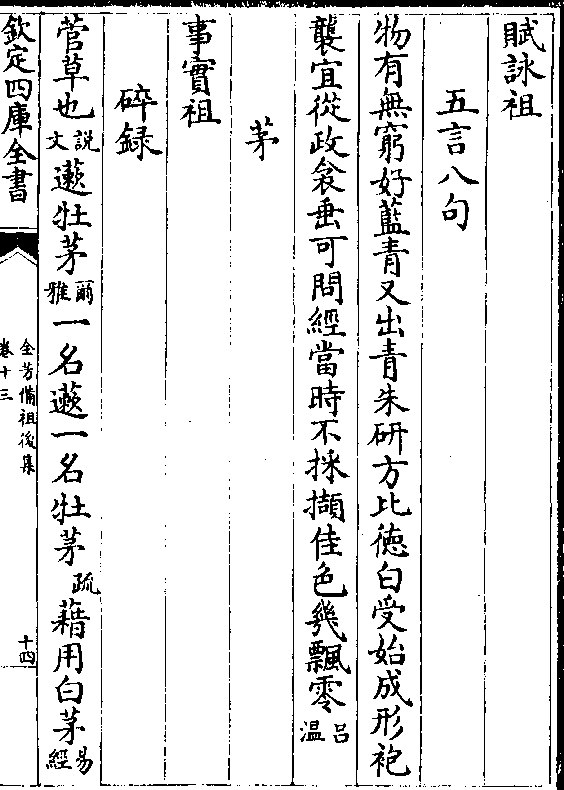 賦詠祖
五言八句
物有無窮好藍青又出青朱研方比徳白受始成形袍
襲宜從政衾垂可問經當時不採擷佳色幾飄零吕温
茅
事實祖
碎録
菅草也説文藗牡茅爾雅一名藗一名牡茅疏藉用白茅易經
欽定四庫全書
全芳備祖後集
卷十三
十四